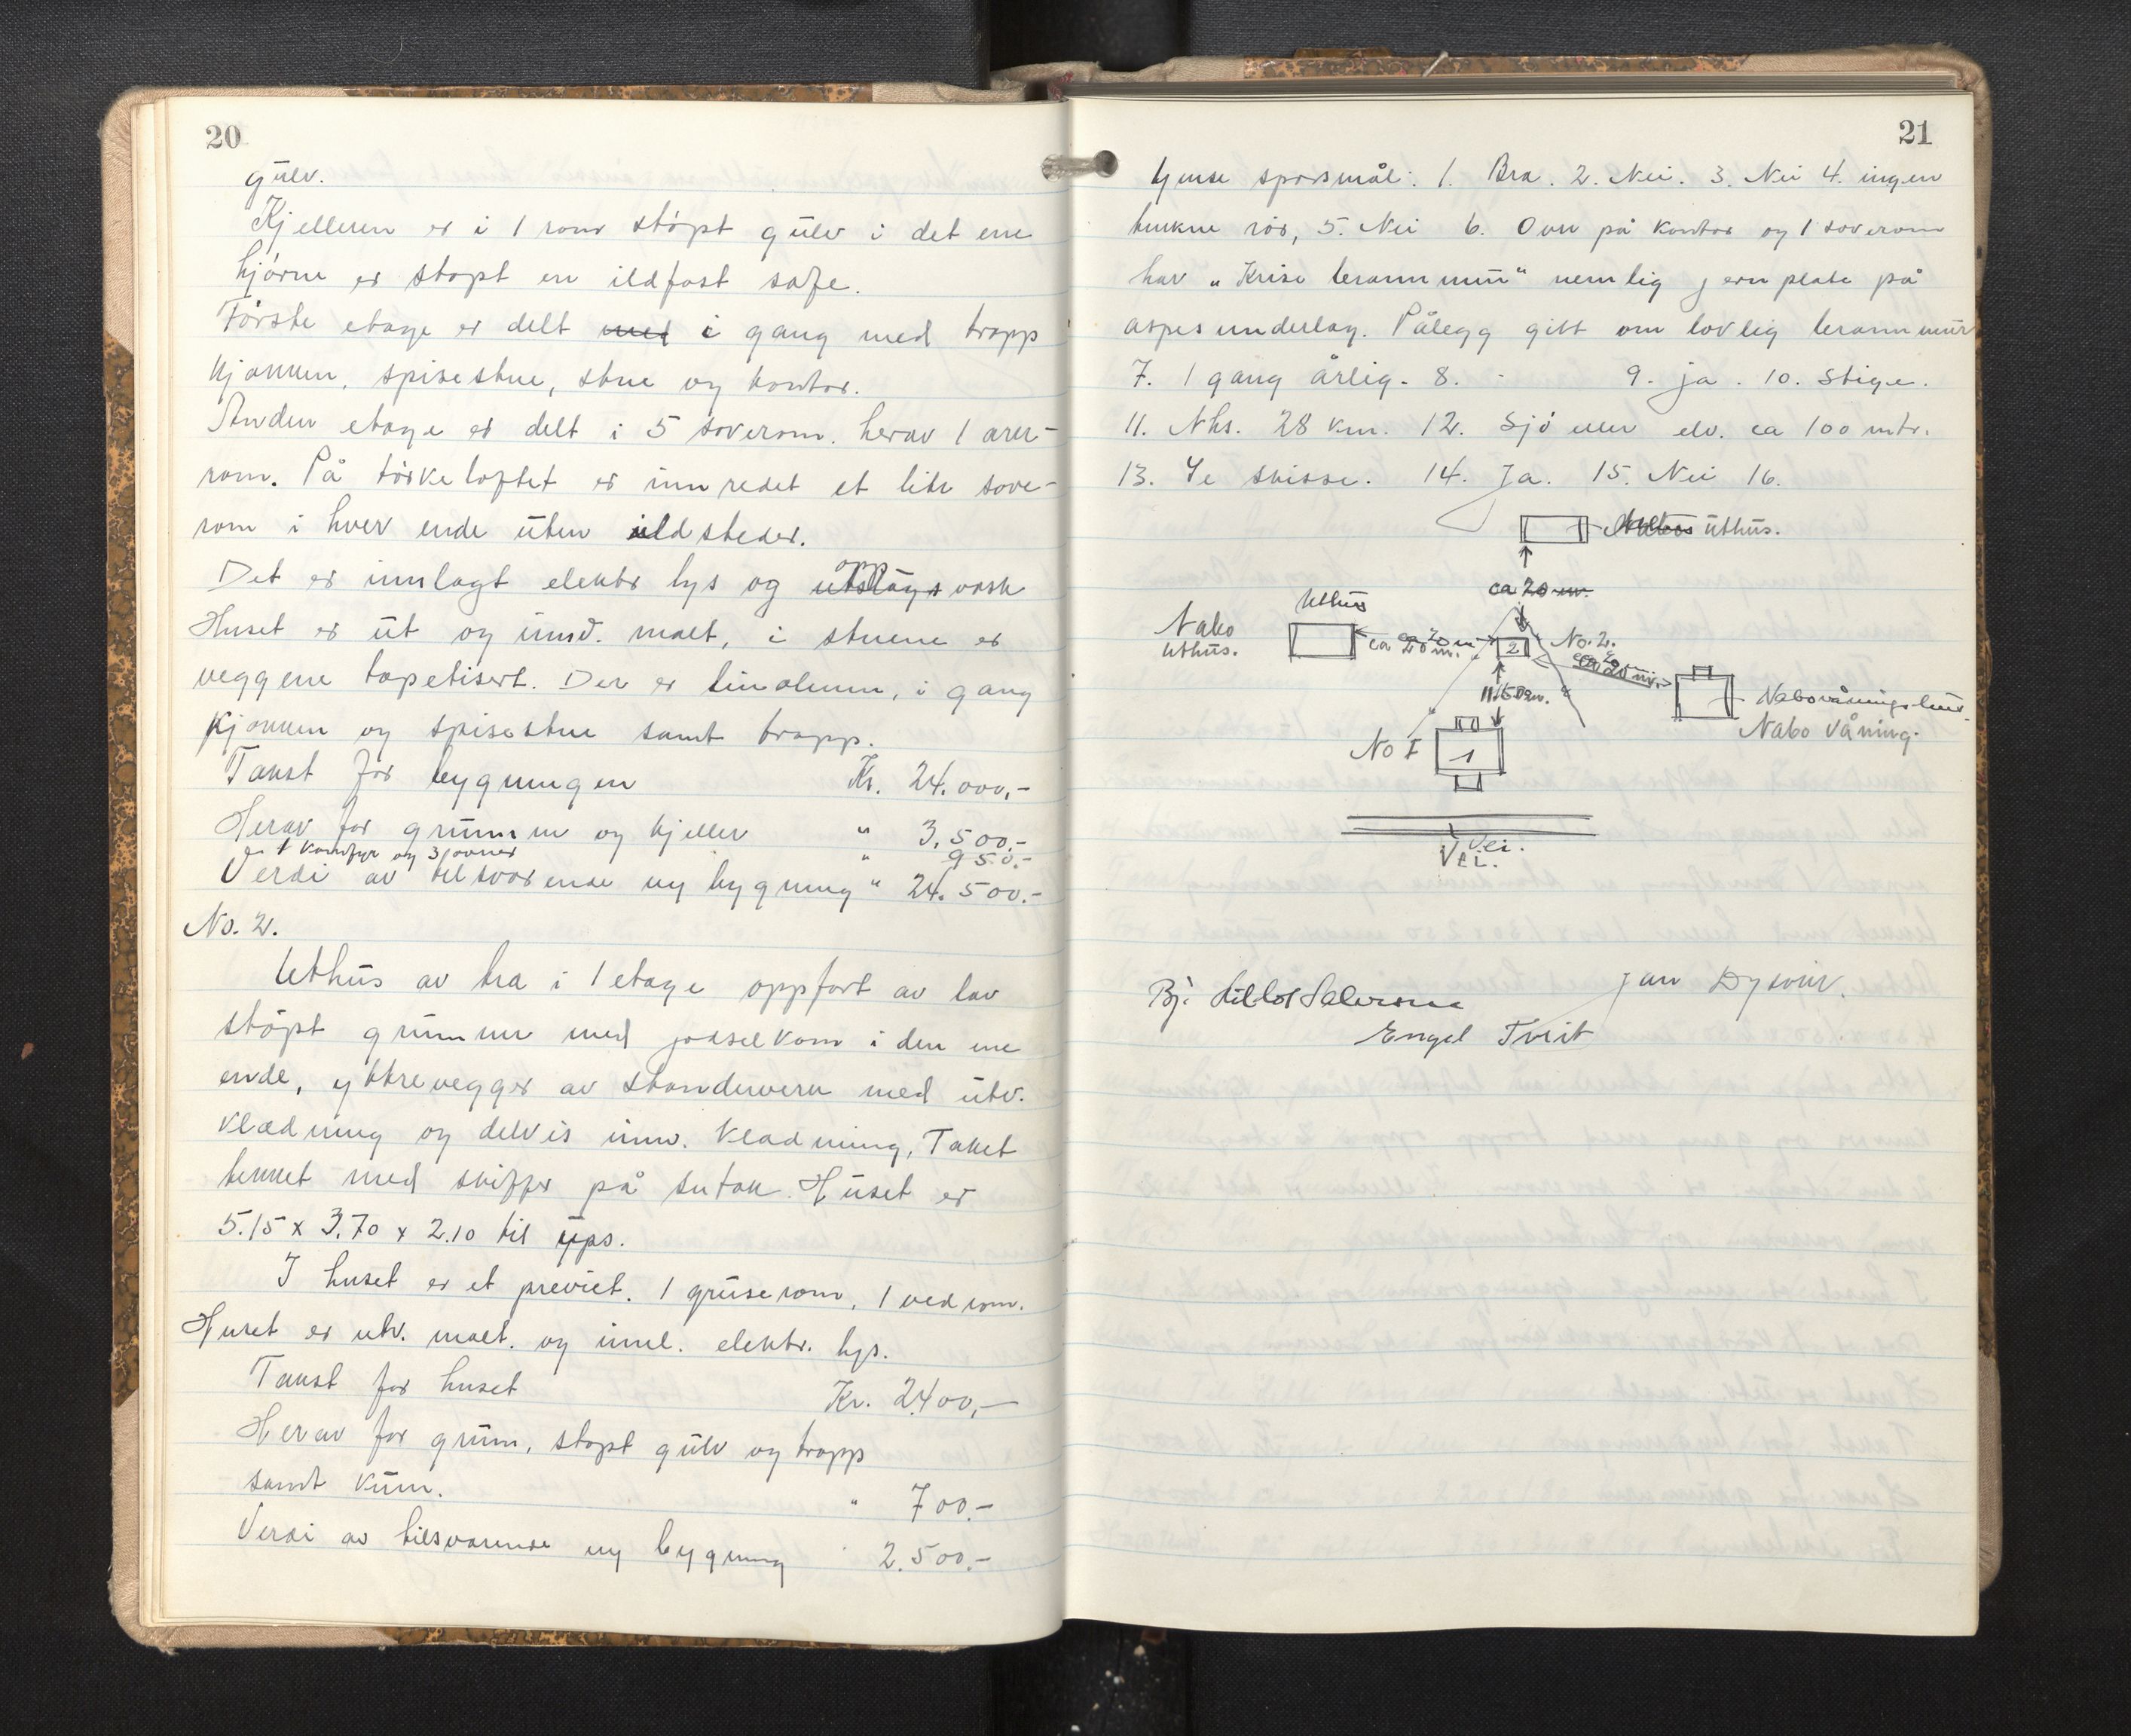 20
gulv.
Kjelleren er i 1 rom støpt gulv i det ene
hjørne er støpt en ildfast safe.
Første etage er delt med i gang med trapp
kjøkken, spisestue, stue og kontor.
Anden etage er delt i 5 soverom. herav 1 arer-
rom. På tørkeloftet er innredet et lite sove-
rom i hver ende uten ildsteder.
Det er innlagt elektr lys og utslags opp vask
Huset er ut og innv. malt, i stuene er
veggene tapetisert. Der er linoleum, i gang
kjøkken og spisestue samt trapp.
Takst for bygningen Kr. 24.000,-
Herav for grunnm og kjeller " 3,500.-
1 komfyr og 3 ovner " 950.-
Verdi av tilsvarende ny bygning " 24.500.-
No. 2.
Uthus av tre i 1 etage oppført av lav
støpt grunnmur med gjødselkom i den ene
ende, yttrevegger av standerverk med utv.
klædning og delvis innv. klædning, Taket
tekket med skiffer på sutak. Huset er
5.15 x 3.70 x 2.10 til ups.
I huset er et previet. 1 gruserom, 1 vedrom.
Huset er utv. malt. og innl. elektr. lys.
Takst for huset Kr. 2400,-
Herav for grunn, støpt gulv og trapp
samt kum. " 700.-
Verdi av tilsvarende ny bygning " 2.500.-
21
Ymse spørsmål: 1. Bra. 2. Nei. 3. Nei 4. ingen
trukne rør, 5. Nei 6. Ovn på kontor og 1 soverom
har "Krise brannmur" nemlig jernplate på
aspesunderlag. Pålegg gitt om lovlig brannmur
7. 1 gang årlig. 8. - 9. ja. 10. Stige.
11. Nhs. 28 km. 12. Sjø eller elv. ca 100 mtr.
13. Se skisse. 14. Ja. 15. Nei 16.
uthus.
ca 20 m.
Uthus
Nabo
uthus.
ca 20 m.
2
No. 2.
ca 20 m.
11.50 m.
Nabovåningshus.
Nabo Våning.
No I
1
Vei.
Vei.
Jan Dysvik.
Engel Tveit